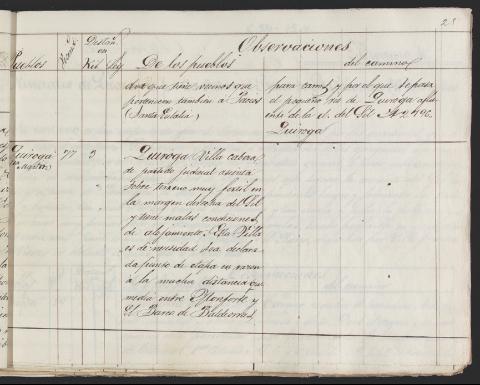 23
Observaciones
Pueblos
Distan.
en
Kil
De los pueblos
del camino
dra que tiene ramos que
pertenecen tambien á Pacios
(Santa Eulalia)
para carros y por el que se pasa
el pequeño rio de Quiroga aflu
ente de la d. del Sil
Quiroga
Quiroga 77 3
Quiroga Villa cabeza
de partido judicial asienta
sobre terreno muy fertil en
la margen derecha del Sil
y tiene malas condiciones
de alojamiento. Esta Villa
es de necesidad sea declara
da punto de etapa en razon
á la mucha distancia que
media entre Monforte y
El Barco de Valdeorras.